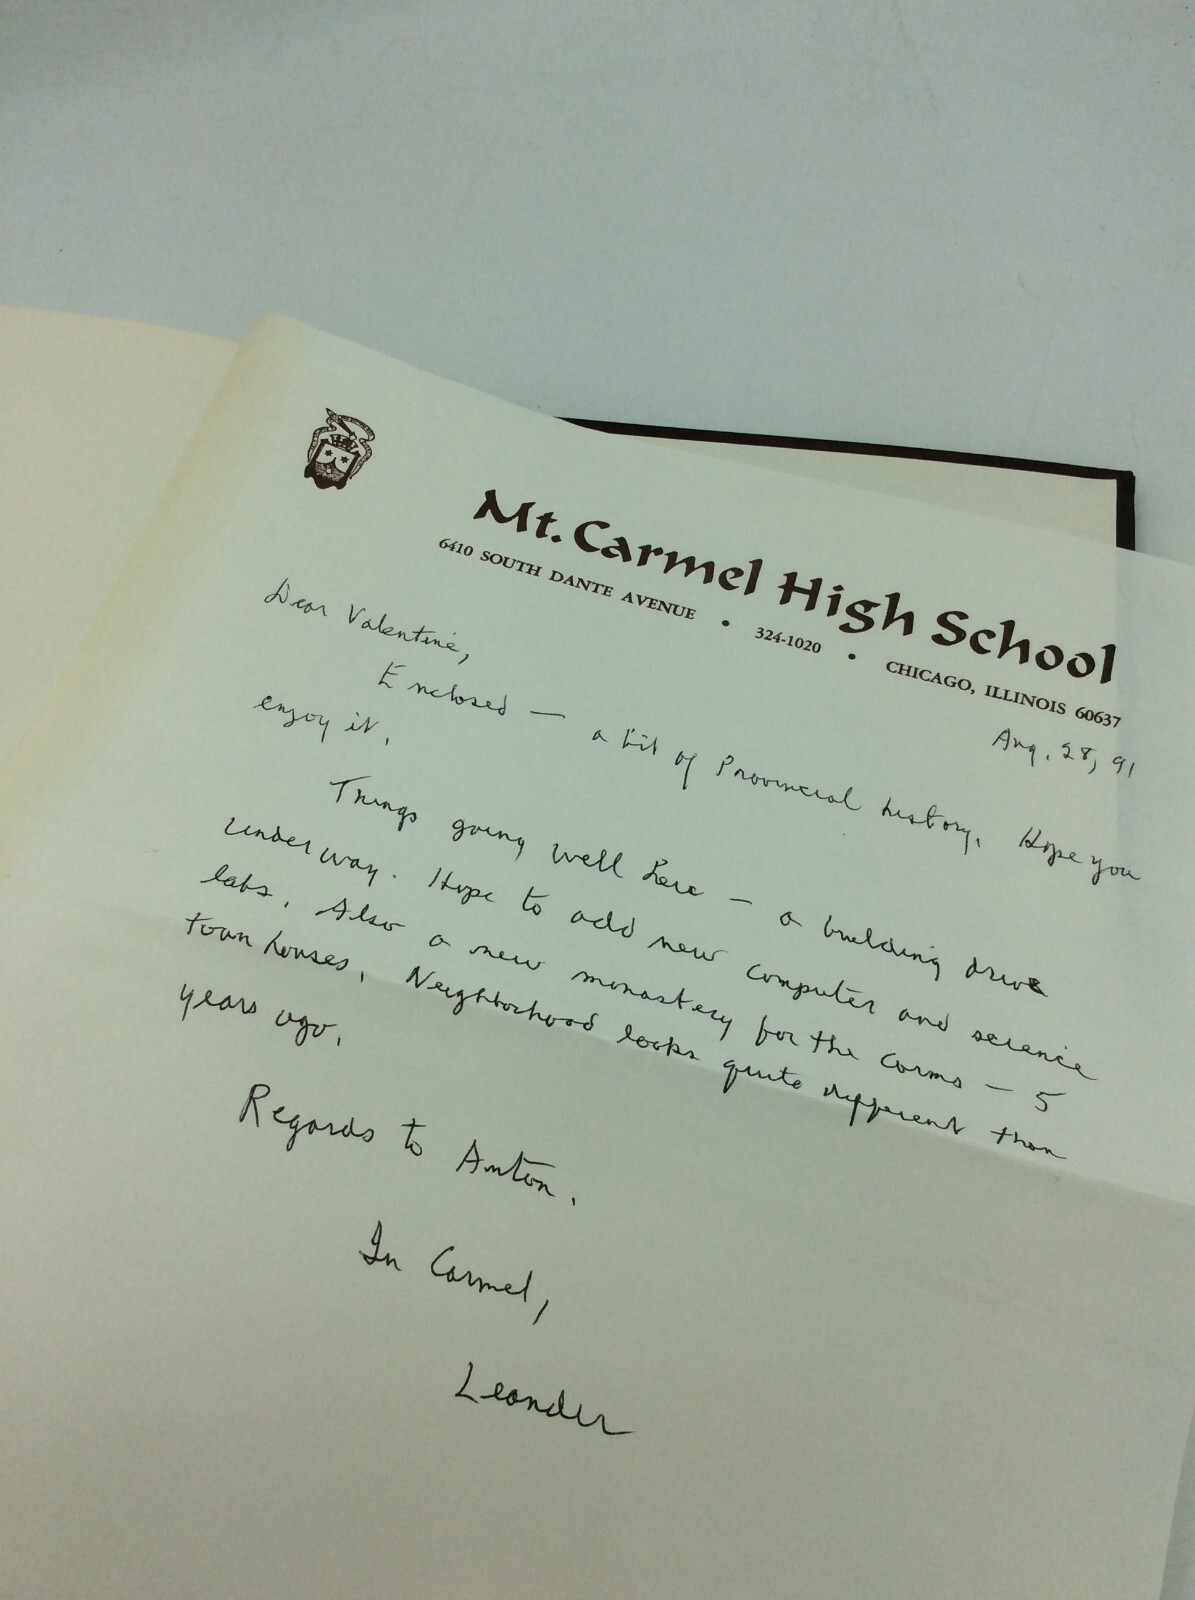 Mt. Carmel High School
6410 SOUTH DANTE AVENUE • 324-1020 • CHICAGO, ILLINOIS 60637
Aug. 28, 91
Dear Valentine,
Enclosed — a bit of Provincial history. Hope you
enjoy it.
Things going well here — a building drive
underway. Hope to add new computer and science
labs. Also a new monastery for the carms — 5
town houses. Neighborhood looks quite different than
years ago.
Regards to Anton.
In Carmel,
Leander